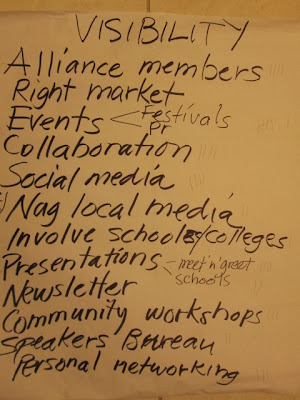 VISIBILITY
Alliance members
Right market
Events < Festivals
pr
Collaboration
Social media
Nag local media
Involve schools/colleges
Presentations < meet 'n' greet
schools
Newsletter
Community workshops
Speakers Bureau
Personal networking